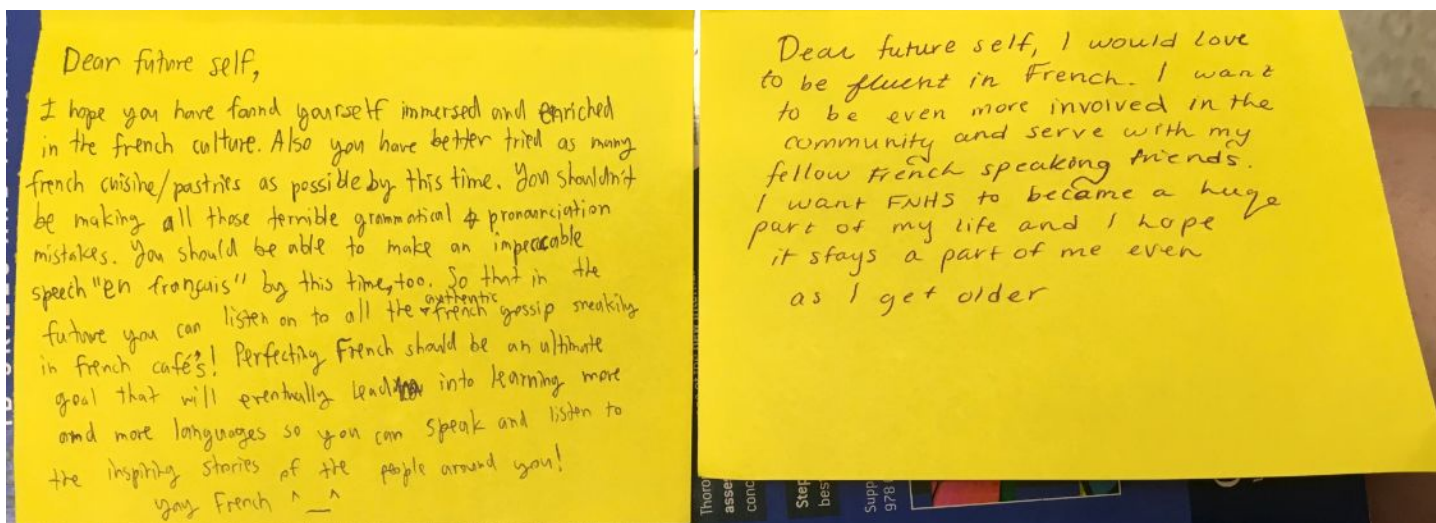 Dear future self,
I hope you have found yourself immersed and enriched
in the french culture. Also you have better tried as many
french cuisine/pastries as possible by this time. You shouldn't
be making all those terrible grammatical & pronounciation
mistakes. You should be able to make an impeccable
speech "en français" by this time, too. So that in the
future you can listen on to all the authentic french gossip sneakily
in french café's! Perfecting French should be an ultimate
goal that will eventually lead into learning more
and more languages so you can speak and listen to
the inspiring stories of the people around you!
yay French ^_^
Dear future self, I would love
to be fluent in French. I want
to be even more involved in the
community and serve with my
fellow French speaking friends.
I want FNHS to became a huge
part of my life and I hope
it stays a part of me even
as I get older
Thoro
asse
conc
Step
best
Supp
978